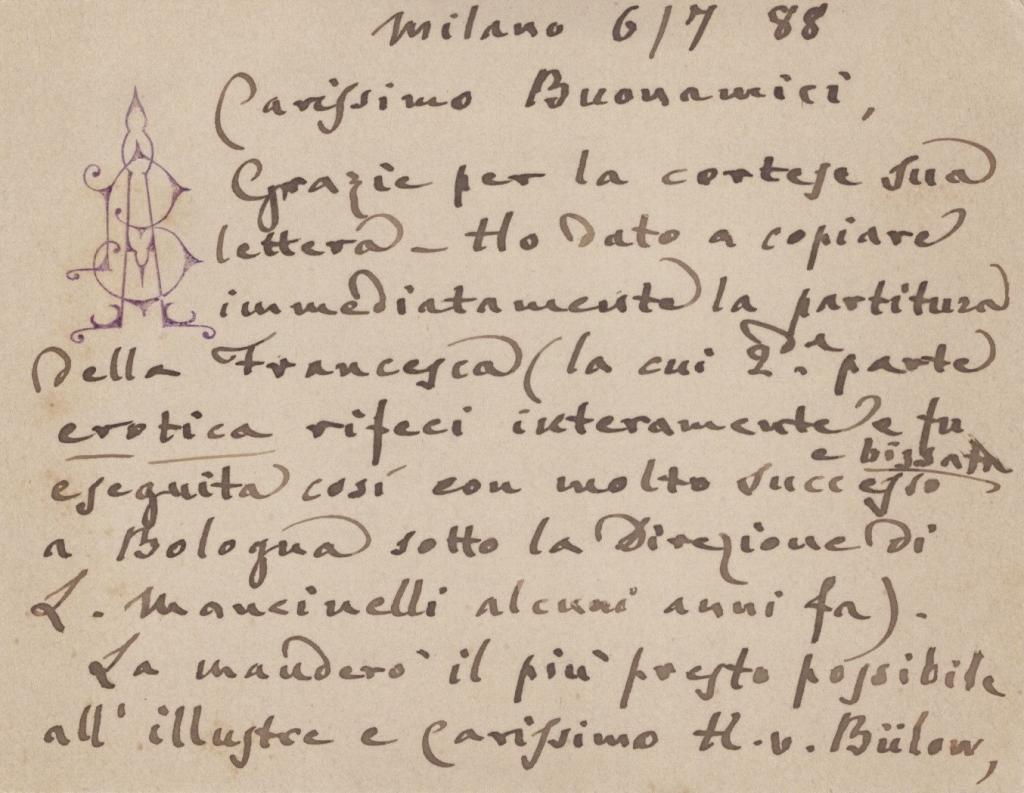 Milano 6/7 88
Carissimo Buonamici,
Grazie per la cortese sua
lettera – Ho dato a copiare
immediatamente la partitura
della Francesca (la cui 2.da parte
erotica rifeci interamente e fu
e bissata
eseguita cosí con molto successo
a Bologna sotto la Direzione di
L. Mancinelli alcuni anni fa).
La manderò il più presto possibile
all' illustre e carissimo H. v. Bülow,